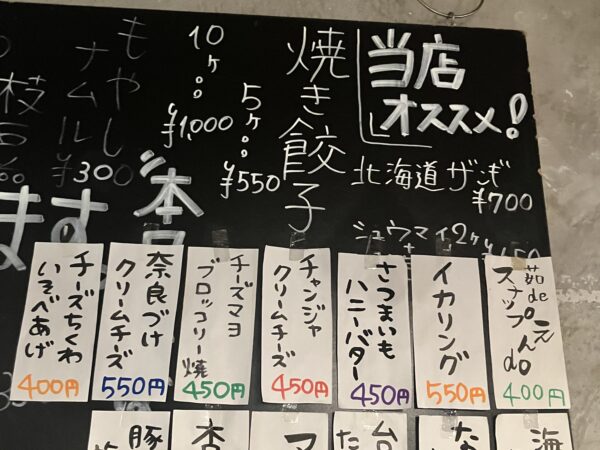 当店
オススメ!
北海道ザンギ
¥700
シュウマイ2ヶ
焼き餃子
10ヶ
¥1,000
5ヶ
¥550
もやし
ナムル
¥300
枝豆
ます
茹de
スナップえんdo
400円
イカリング
550円
さつまいも
ハニーバター
450円
チャンジャ
クリームチーズ
450円
チーズマヨ
ブロッコリー焼
450円
奈良づけ
クリームチーズ
550円
チーズちくわ
いそべあげ
400円
海
な
台
た
マ
杏
豚